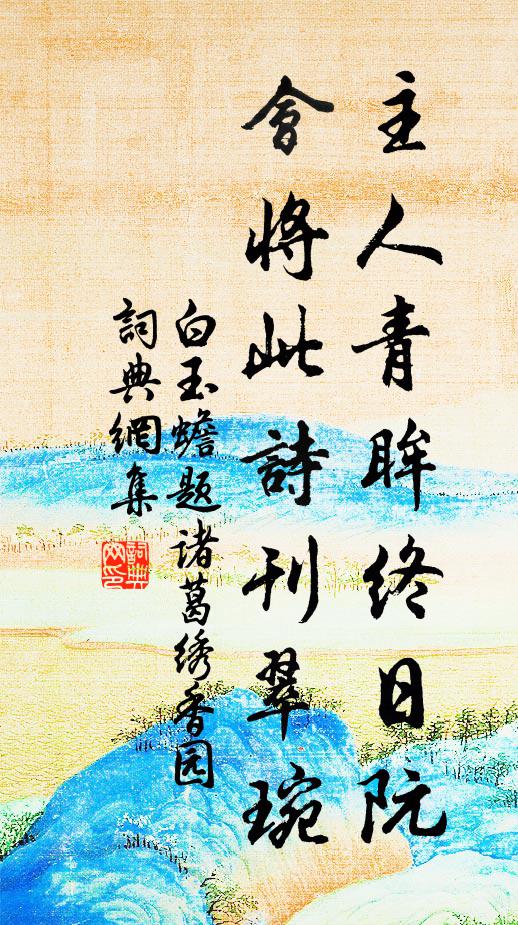 主人青眸终日阮
會将此詩刊翠琬
白玉蟾题诸葛绣香园
詞典網集
詞典網印